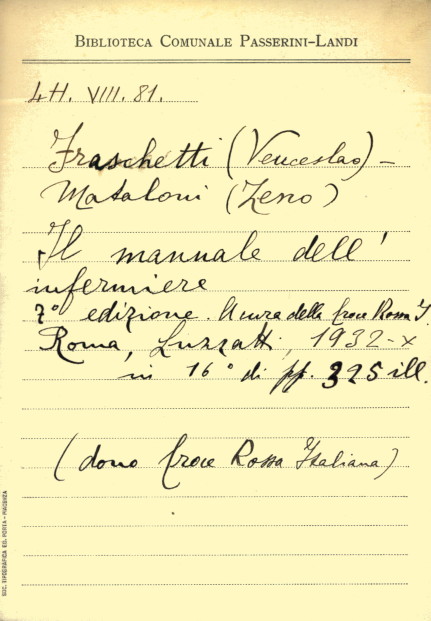 BIBLIOTECA COMUNALE PASSERINI-LANDI
4H. VIII. 81.
Fraschetti (Venceslao) -
Mataloni (Zeno)
Il manuale dell'
infermiere
7° edizione. A cura della Croce Rossa I.
Roma, Luzzatti, 1932-X
in 16° di pp. 325 ill.
(dono Croce Rossa Italiana)
SOC. TIPOGRAFICA ED. PORTA - PIACENZA